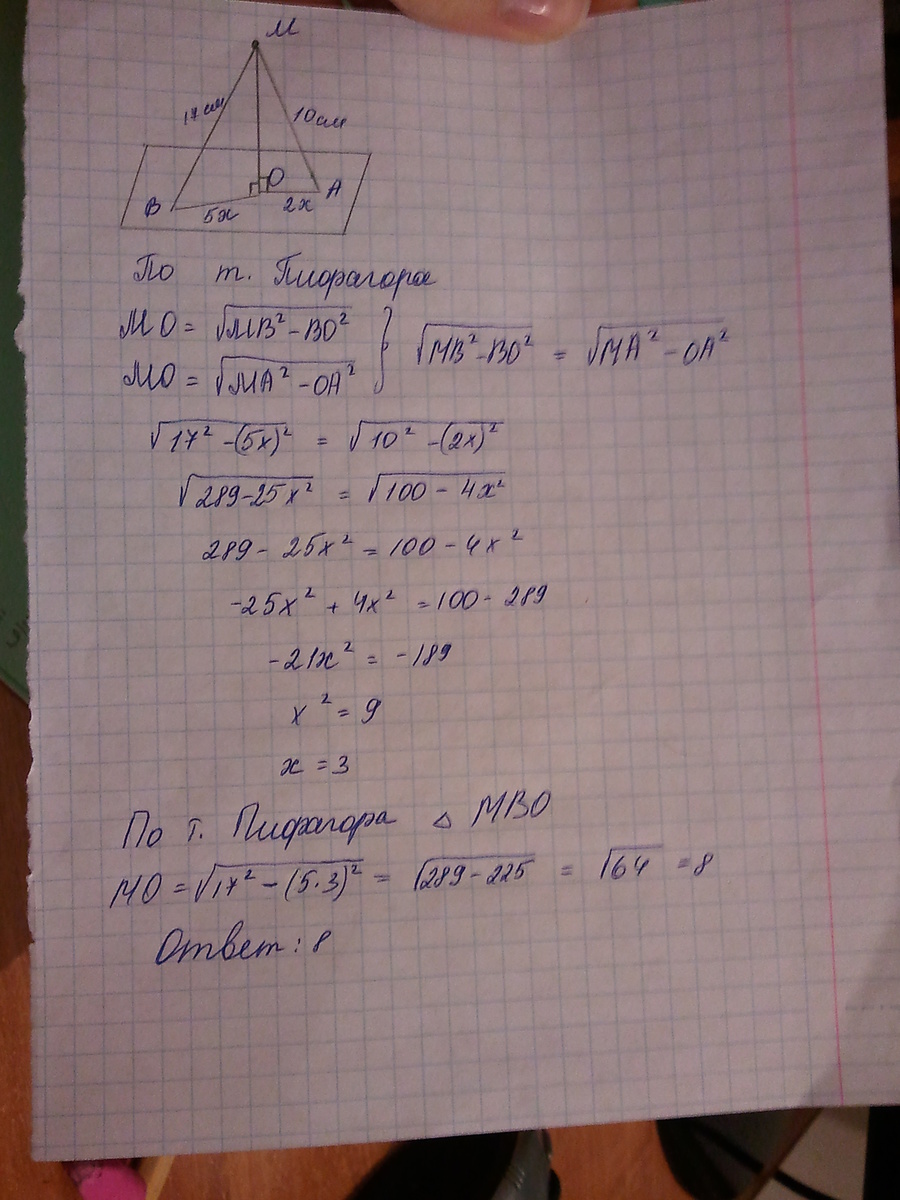 M
17см 10см
B 5x O 2x A
По т. Пифагора
MO = √MB² - BO²
MO = √MA² - OA² } √MB² - BO² = √MA² - OA²
√17² - (5x)² = √10² - (2x)²
√289 - 25x² = √100 - 4x²
289 - 25x² = 100 - 4x²
-25x² + 4x² = 100 - 289
-21x² = -189
x² = 9
x = 3
По т. Пифагора △ MBO
MO = √17² - (5·3)² = √289 - 225 = √64 = 8
Ответ: 8